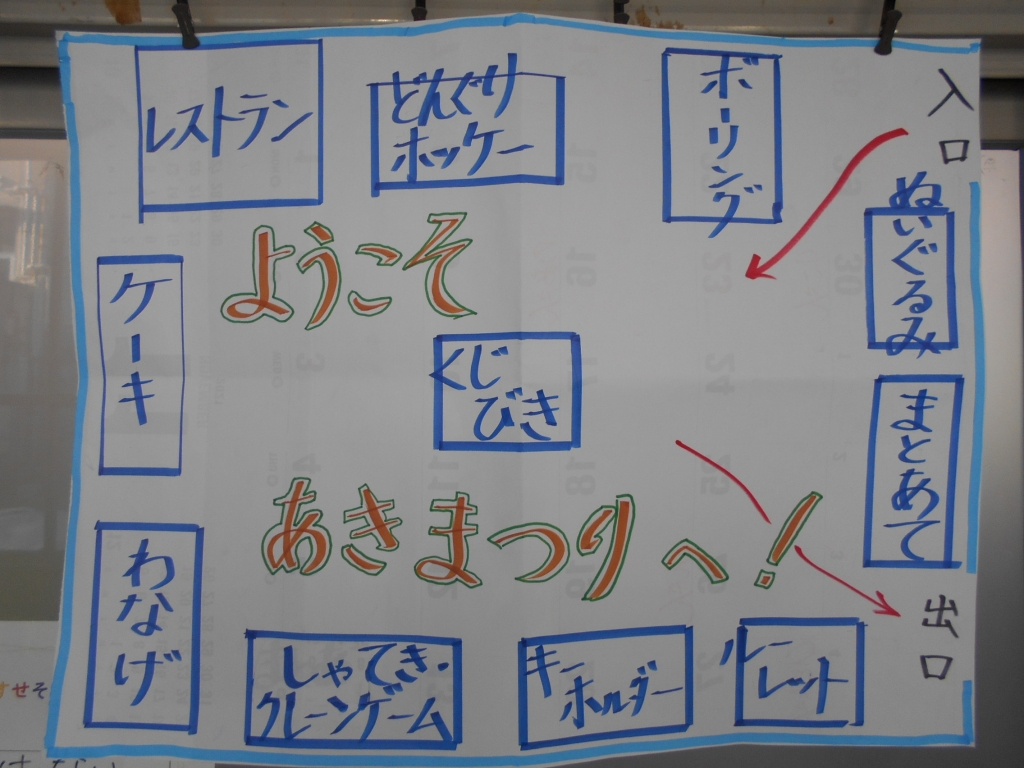 レストラン
どんぐり
ホッケー
ボーリング
入口
ぬいぐるみ
ようこそ
ケーキ
くじ
びき
まとあて
あきまつりへ!
わなげ
しゃてき・
クレーンゲーム
キー
ホルダー
ルー
レット
出口
すせそ